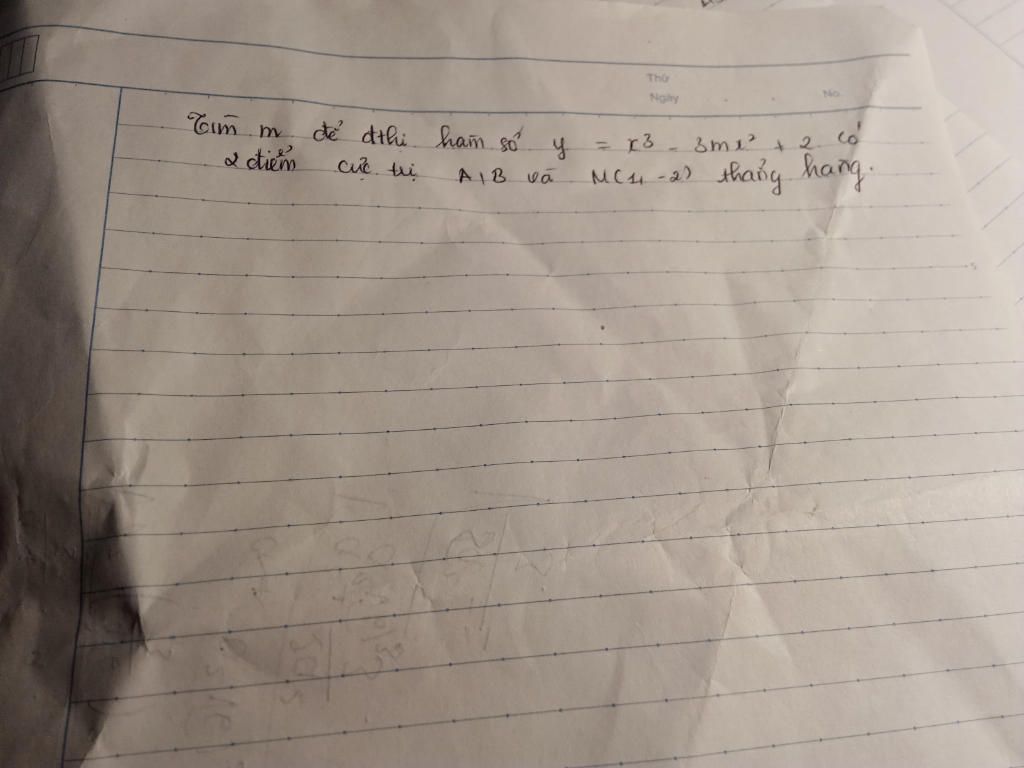 Thứ
Ngày No.
Tìm m để đthị hàm số y = x³ - 3mx² + 2 có
2 điểm cực trị A, B và M(1, -2) thẳng hàng.